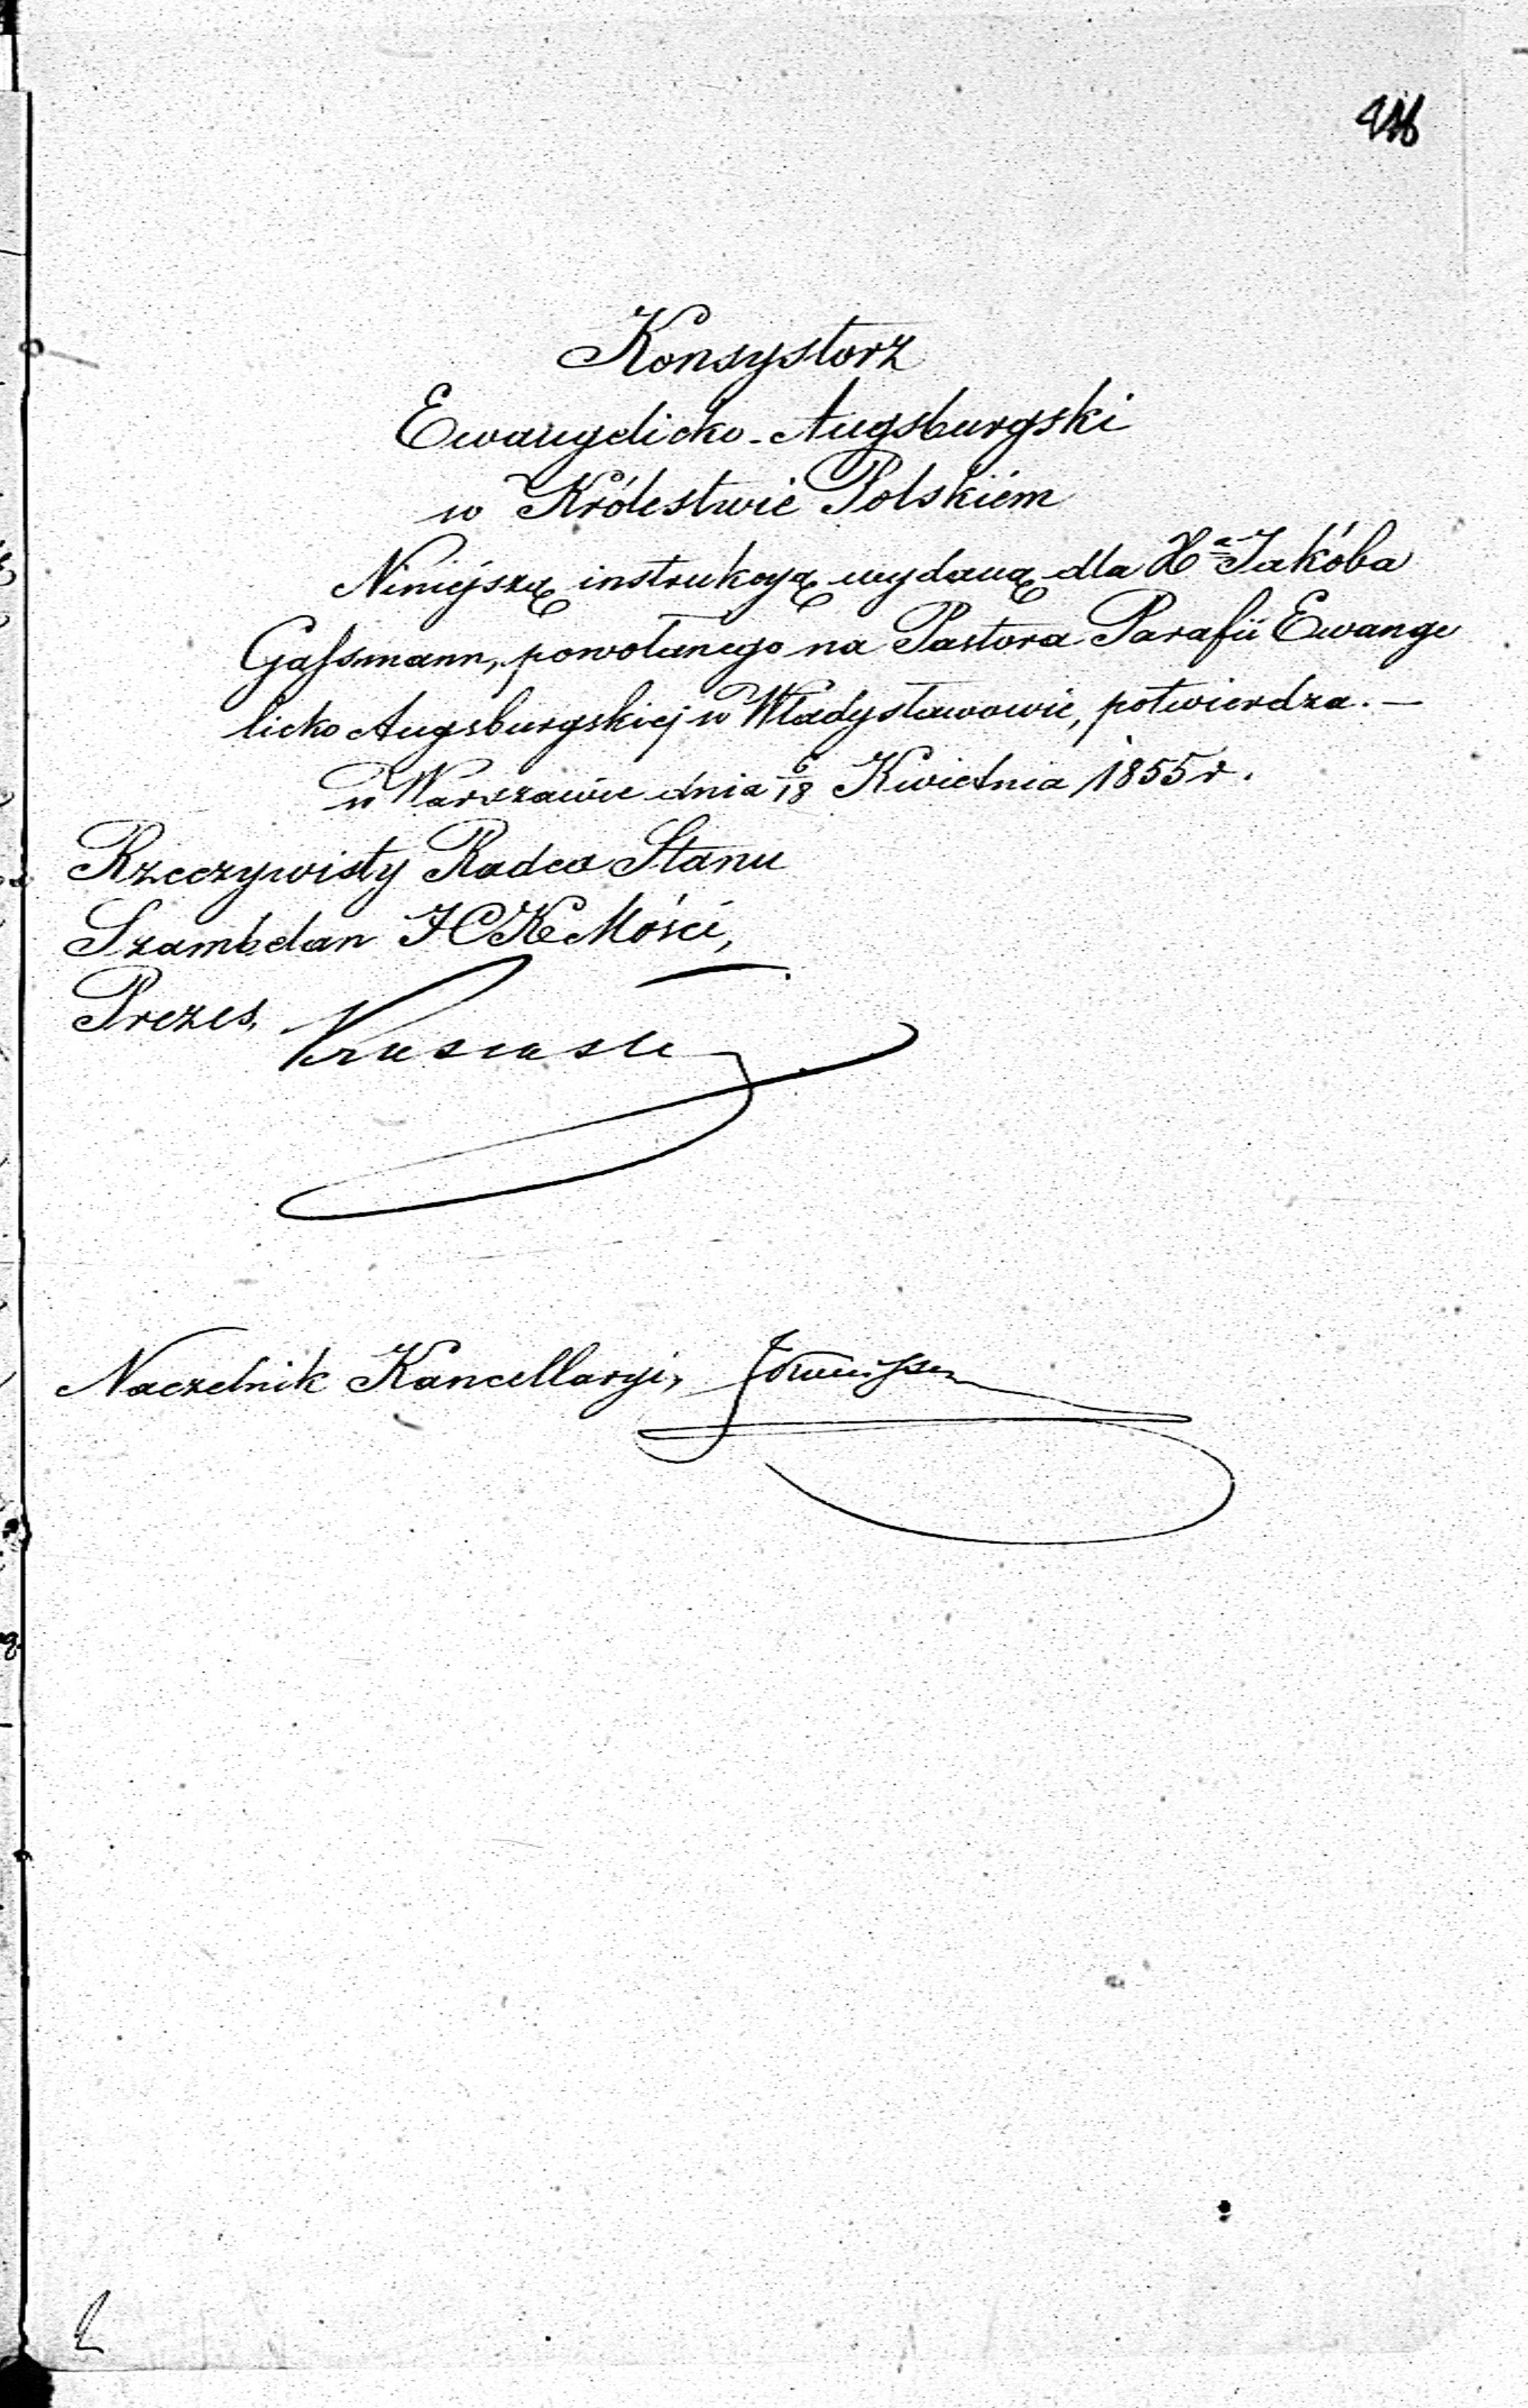 Konsystorz
Ewangelicko-Augsburgski
w Królestwie Polskiém
Niniejszą instrukcyą wydaną dla Xa Jakóba
Gaſsmann, powołanego na Pastora Parafii Ewange
licko Augsburgskiej w Władysławowie, potwierdza. —
w Warszawie dnia 6/18 Kwietnia 1855 r.
Rzeczywisty Radca Stanu
Szambelan JCKMości,
Prezes,
Naczelnik Kancellaryi,